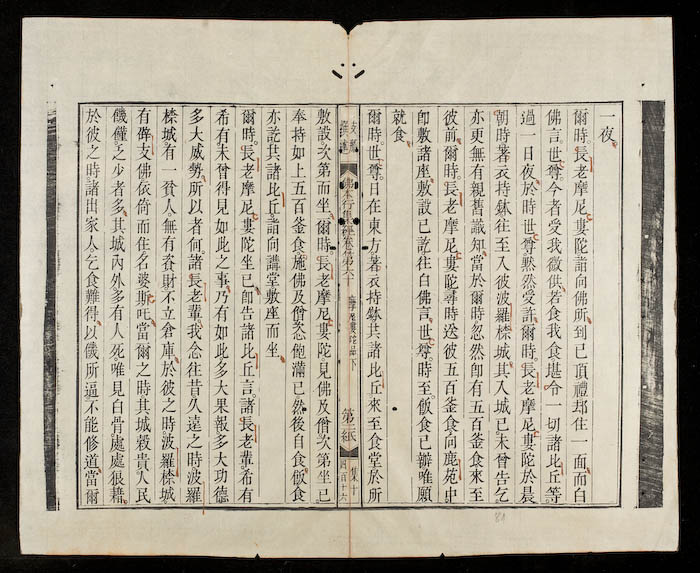 一夜。
爾時。長老摩尼婁陀詣向佛所到已頂禮却住一面而白
佛言。世尊。今者受我微供。若食我食堪令一切諸比丘等
過一日夜。於時世尊默然受許。爾時。長老摩尼婁陀。於晨
朝時著衣持鉢往至入彼波羅㮈城。其入城已。未曾告乞
亦更無有親舊識知。當於爾時忽然即有五百釜食來至
彼前。爾時。長老摩尼婁陀。尋時送彼五百釜食。向鹿苑中
即敷諸座。敷設已訖往白佛言。世尊。時至飯食已辦唯願
就食。
爾時。世尊。日在東方著衣持鉢共諸比丘來至食堂於所
佛本行集經卷第六十 摩尼婁陀品下 第三紙 集十
敷設。次第而坐。爾時。長老摩尼婁陀見佛及僧次第坐已
奉持如上五百釜食施佛及僧。悉飽滿已然後自食。飯食
亦訖。共諸比丘。詣向講堂敷座而坐。
爾時。長老摩尼婁陀坐已即告諸比丘言。諸長老輩。希有
希有未曾得見如此之事。乃有如此多大果報多大功德
多大威勢。所以者何。諸長老輩。我念往昔久遠之時。波羅
㮈城。有一貧人。無有資財不立倉庫。於彼之時。波羅㮈城
有辟支佛依倚而住名婆斯吒。當爾之時其城穀貴。人民
饑饉。乏少者多。其城內外多有人死唯見白骨處處狼藉。
於彼之時諸出家人乞食難得。以饑所逼不能修道。當爾